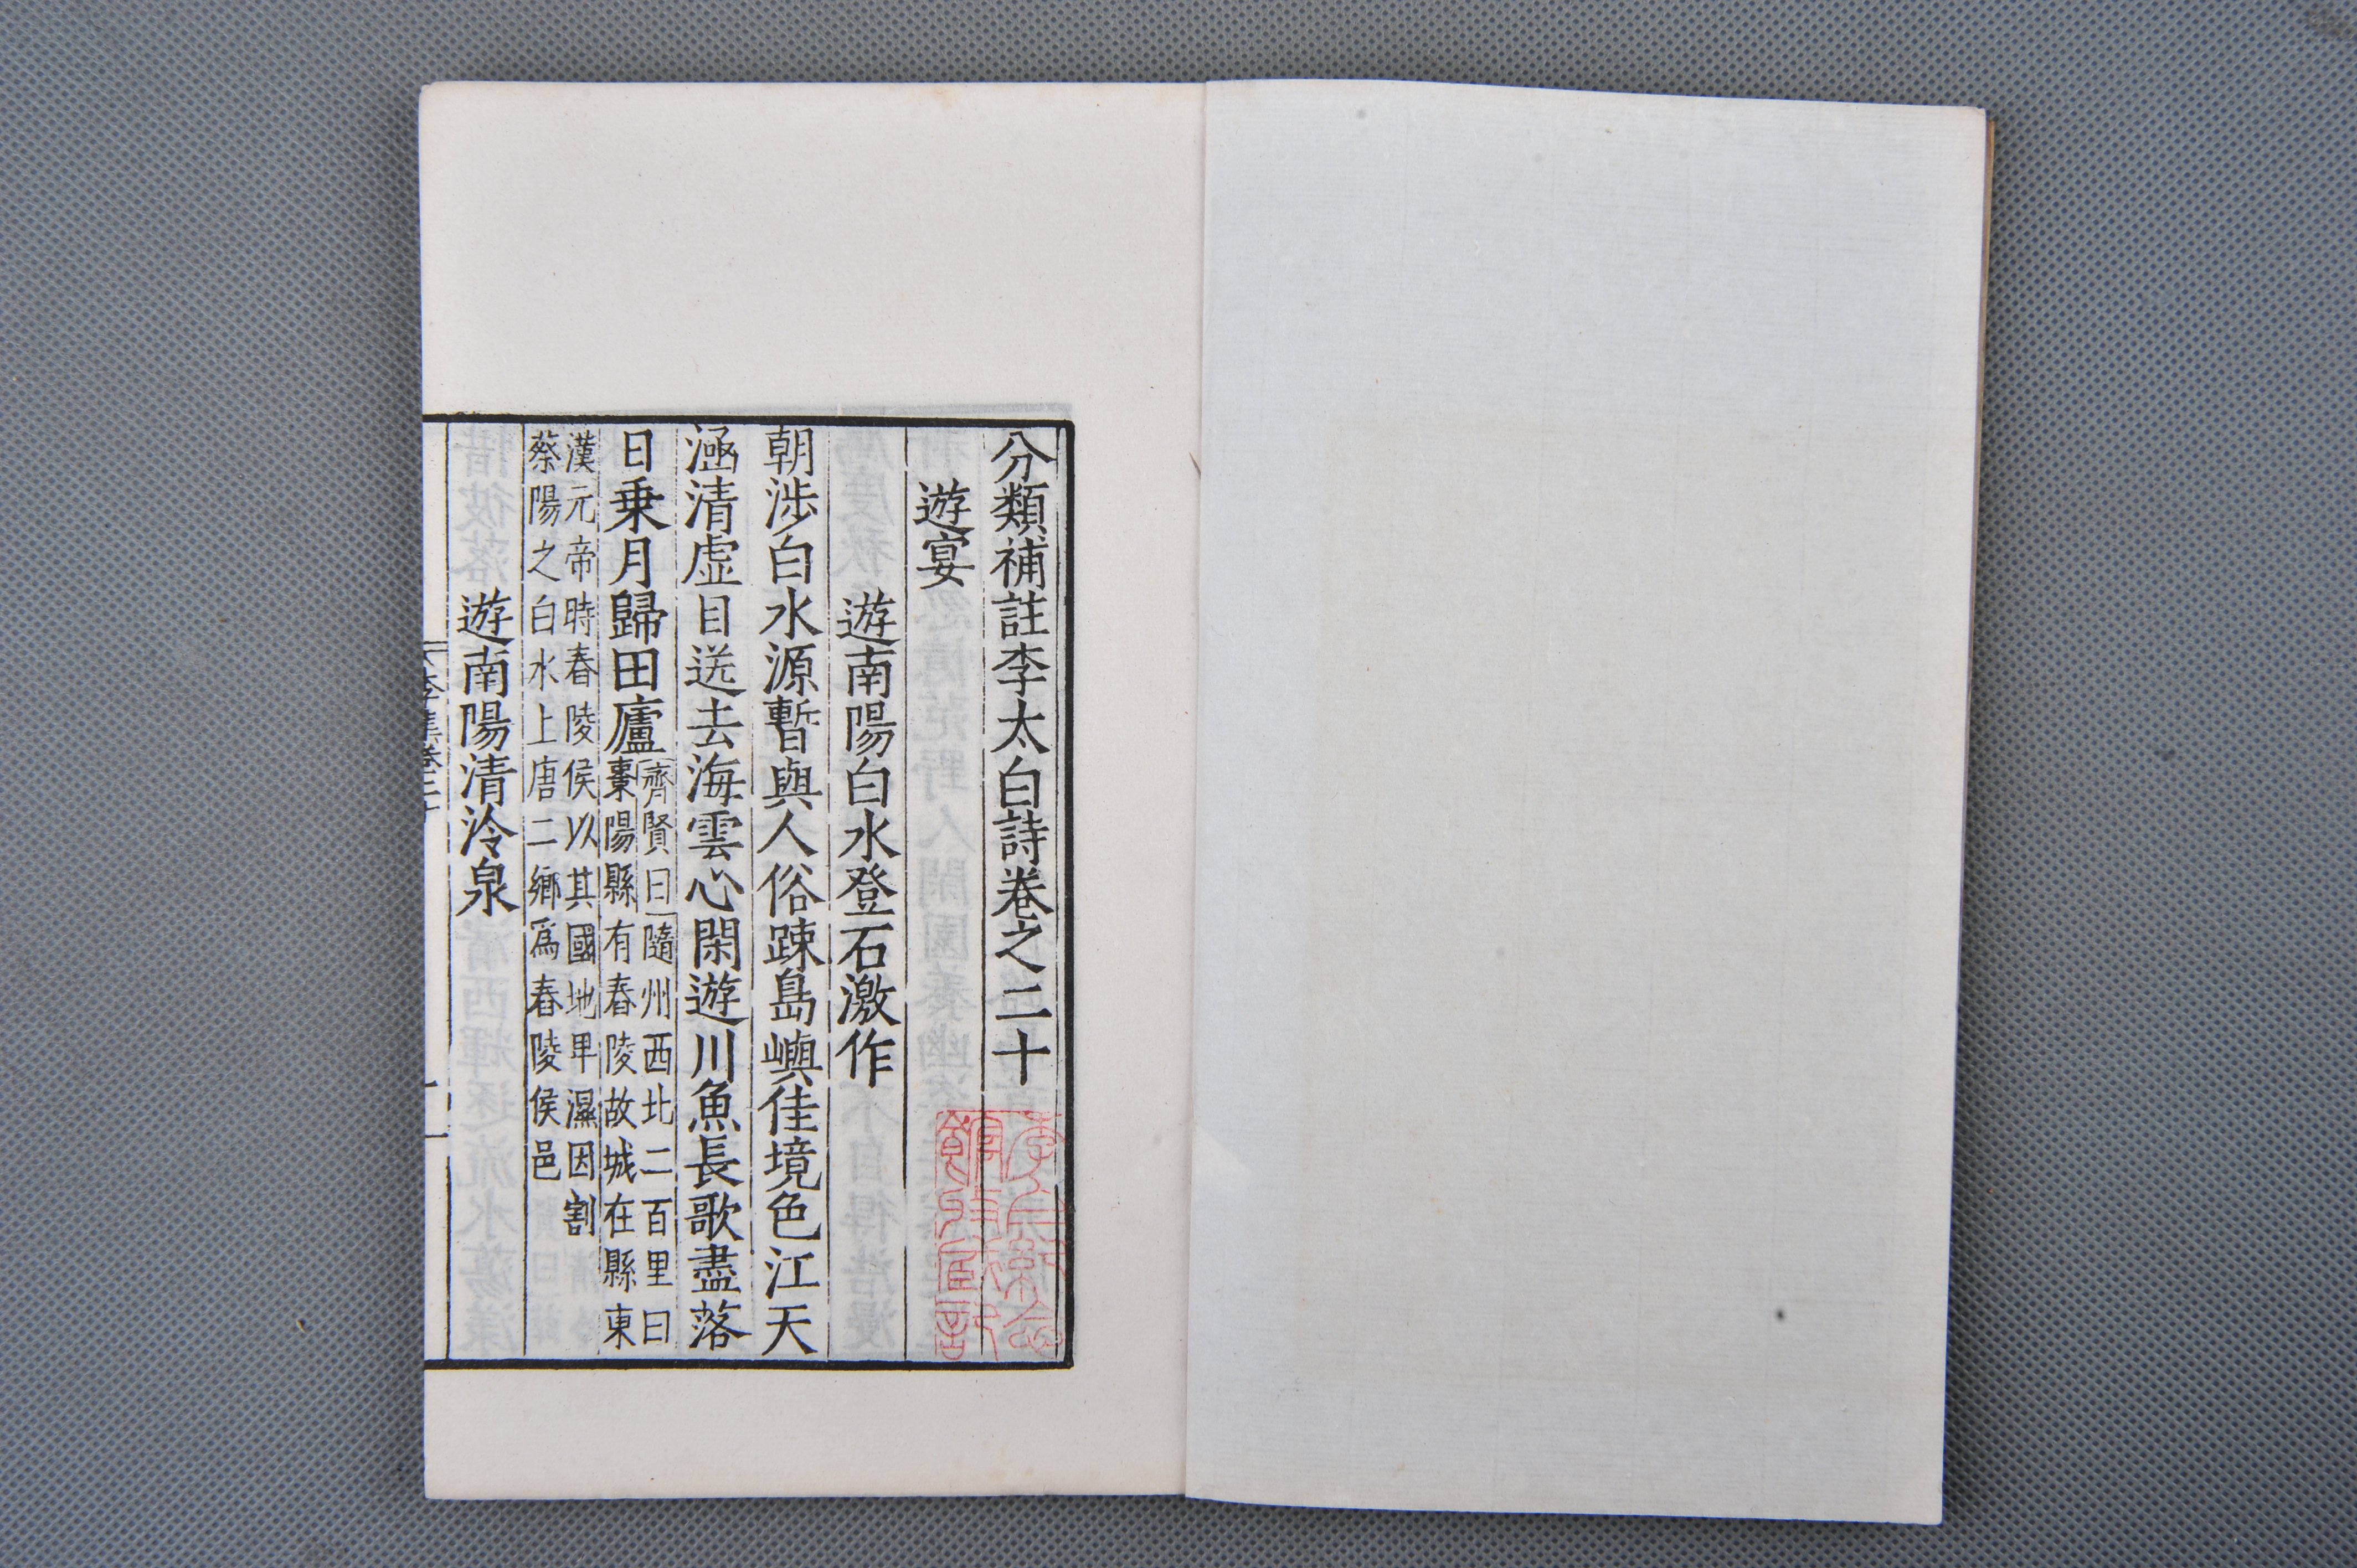 分類補註李太白詩卷之二十
遊宴
遊南陽白水登石激作
朝涉白水源暫與人俗踈島嶼佳境色江天
涵清虛目送去海雲心閑遊川魚長歌盡落
日乗月歸田廬
齊賢曰隨州西北二百里曰
棗陽縣有舂陵故城在縣東
漢元帝時春陵侯以其國地卑濕因割
蔡陽之白水上唐二鄉爲舂陵侯邑
遊南陽清泠泉
李集卷二十